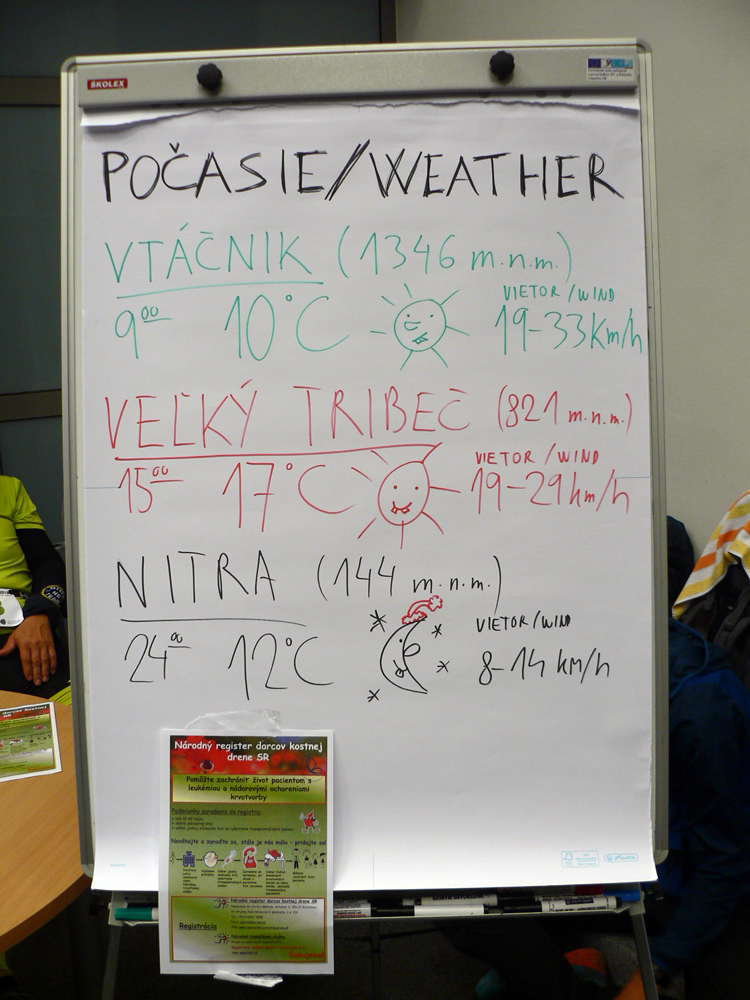 ŠKOLEX
POČASIE/WEATHER
VTÁČNIK (1346 m.n.m.)
9⁰⁰ 10°C VIETOR/WIND
19-33Km/h
VEĽKÝ TRIBEČ (821 m.n.m.)
15⁰⁰ 17°C VIETOR/WIND
19-29km/h
NITRA (144 m.n.m.)
24⁰⁰ 12°C VIETOR/WIND
8-14 km/h
Národný register darcov kostnej
drene SR
Pomôžte zachrániť život pacientom s
leukémiou a nádorovými ochoreniami
krvotvorby
Podmienky zaradenia do registra:
Neváhajte a zaraďte sa, stále je nás málo - pridajte sa!
Národný register darcov kostnej drene SR
Registrácia